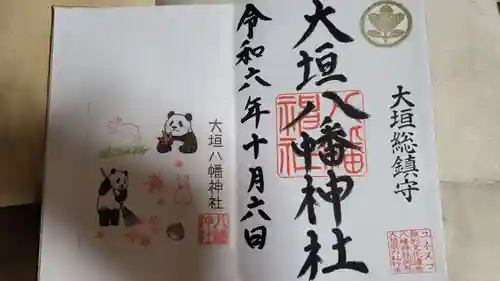 大垣総鎮守
大垣八幡神社
八幡
神社
令和六年十月六日
大垣八幡神社
八幡
神社